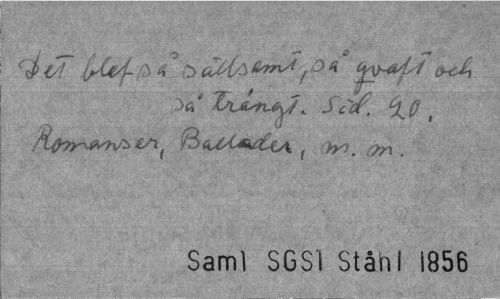 Det blef så sällsamt, så qvaft och
så trångt. Sid. 20.
Romanser, Ballader, m. m.
Saml SGSl Ståhl 1856